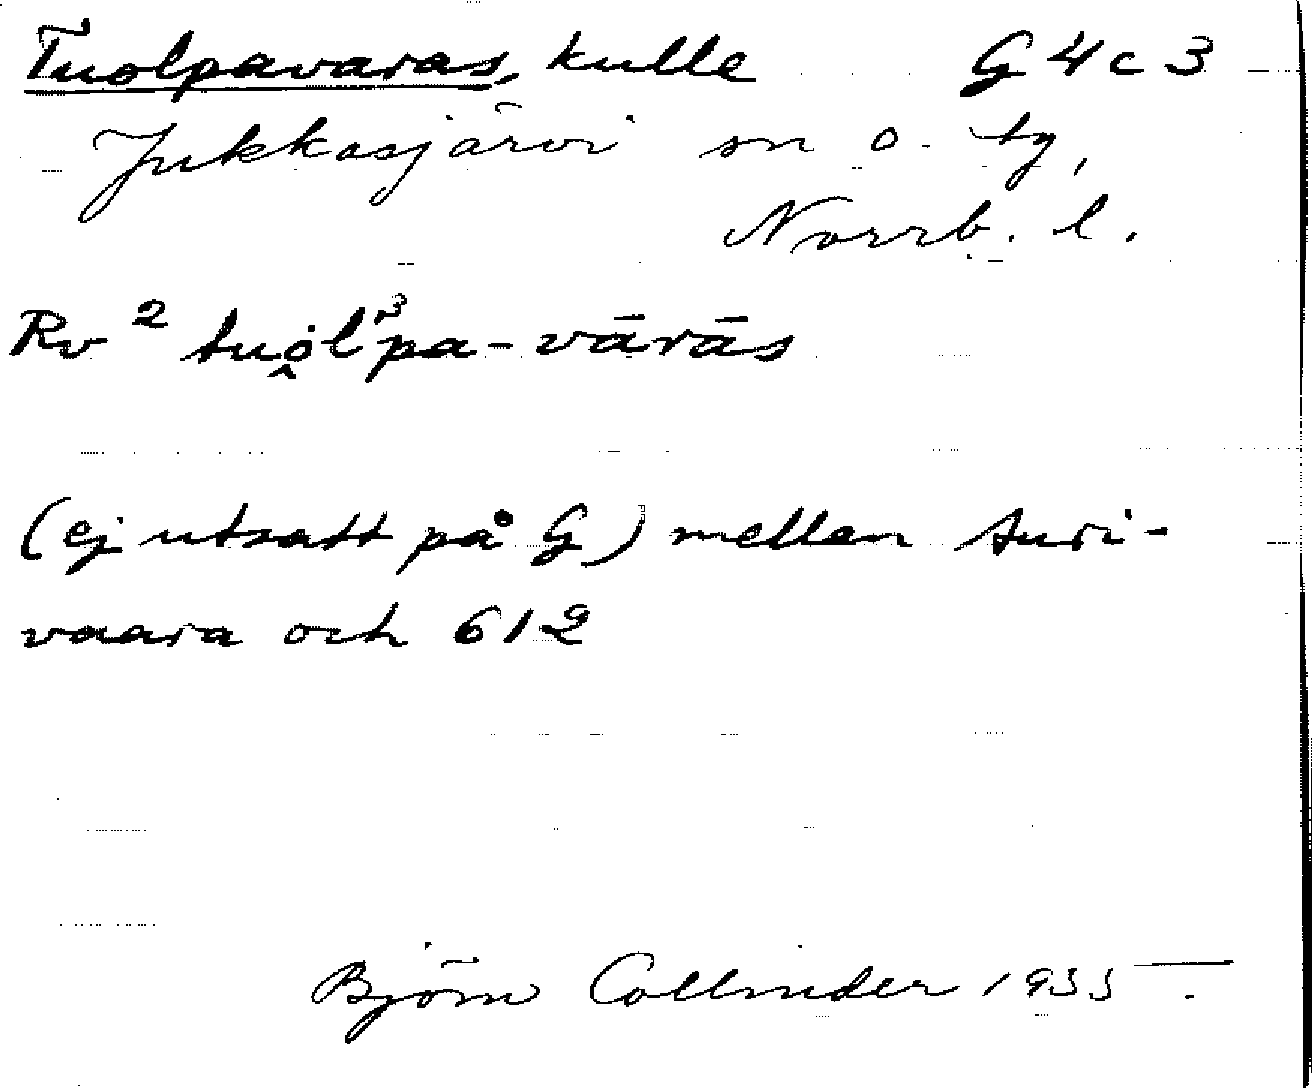 Tuolpavaras, kulle G4c3
Jukkasjärvi sn o. tg,
Norrb. l.
Rv ² tuȯ̭l'³pa-vārās
(ej utsatt på G) mellan turi-
vaara och 612
Björn Collinder 1935.